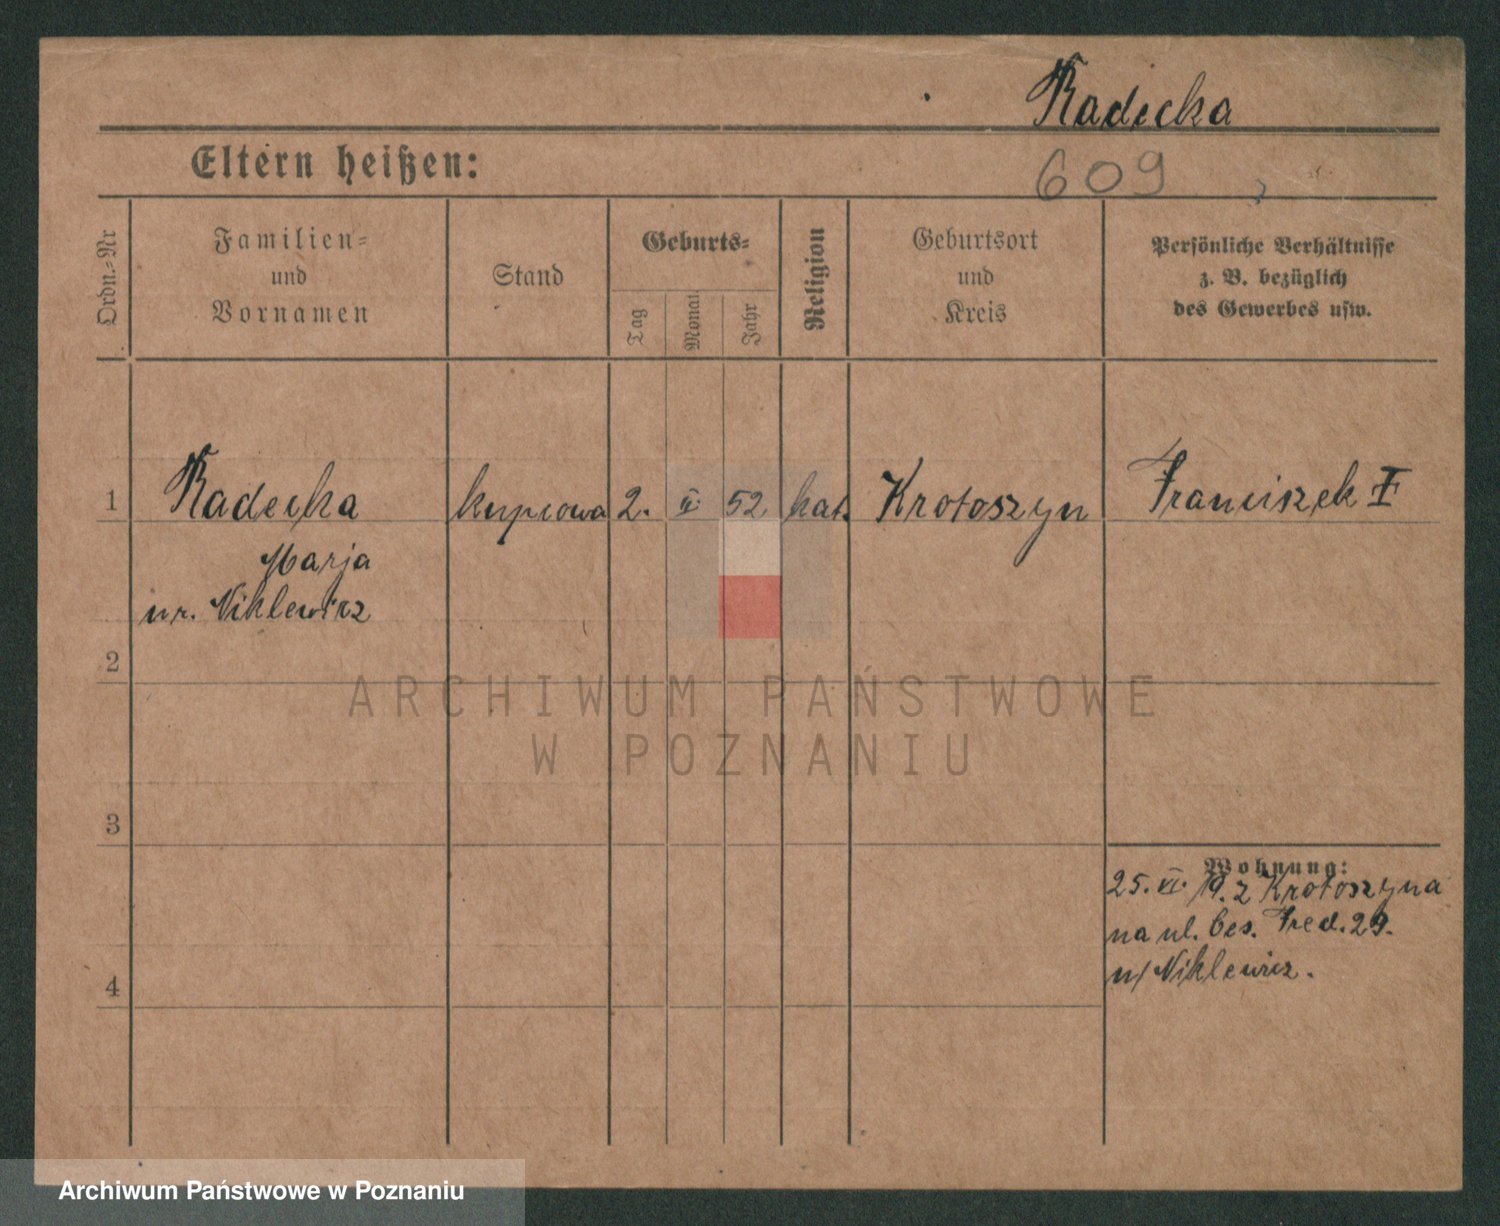 Radecka
Eltern heißen:
609
Ordn.-Nr
Familien-
und
Vornamen
Stand
Geburts-
Tag
Monat
Jahr
Religion
Geburtsort
und
Kreis
Persönliche Verhältnisse
z. B. bezüglich
des Gewerbes usw.
1
Radecka
kupcowa
2.
52
kat.
Krotoszyn
Franciszek
Marja
ur. Niklewicz
2
3
4
Wohnung:
25. VI. 19. z Krotoszyna
na ul. Ces. Fred. 29.
u/ Niklewicz.
ARCHIWUM PAŃSTWOWE
W POZNANIU
Archiwum Państwowe w Poznaniu